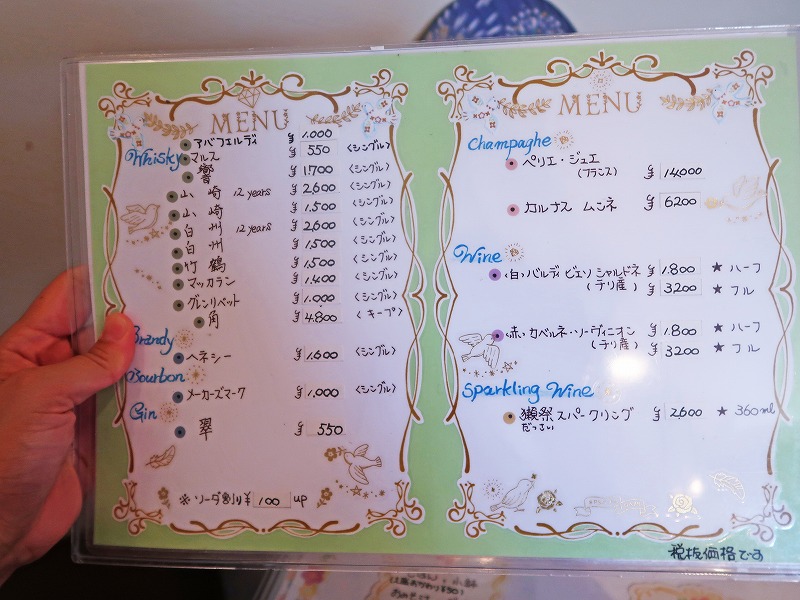 MENU
アバフェルディ ¥1.000
Whisky マルス ¥550 〈シングル〉
響 ¥1.700 〈シングル〉
山崎 12 years ¥2.600 〈シングル〉
山崎 ¥1.500 〈シングル〉
白州 12 years ¥2.600 〈シングル〉
白州 ¥1.500 〈シングル〉
竹鶴 ¥1.500 〈シングル〉
マッカラン ¥1.400 〈シングル〉
グレンリベット ¥1.000 〈シングル〉
角 ¥4.800 〈キープ〉
Brandy
ヘネシー ¥1.600 〈シングル〉
Bourbon
メーカーズマーク ¥1,000 〈シングル〉
Gin
翠 ¥550
※ソーダ割り¥100 up
MENU
Champaghe
ペリエ・ジュエ ¥14.000
(フランス)
カルナス ムンネ ¥6200
Wine
〈白〉バルディビエソ シャルドネ ¥1.800 ★ハーフ
(チリ産) ¥3200 ★フル
〈赤〉カベルネ・ソーヴィニオン ¥1.800 ★ハーフ
(チリ産) ¥3200 ★フル
Sparkling Wine
獺祭スパークリング ¥2.600 ★360ml
だっさい
税抜価格です